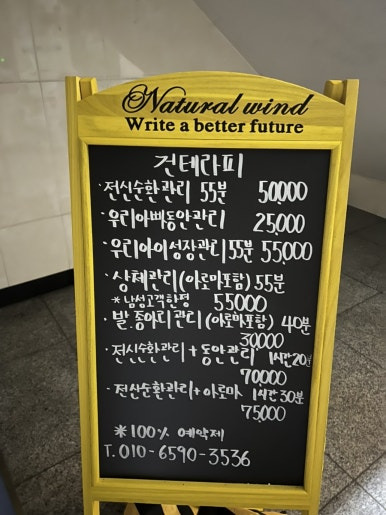 Natural wind
Write a better future
컨테라피
·전신순환관리 55분 50,000
·우리아빠동안관리 25,000
·우리아이성장관리 55분 55,000
·상체관리(아로마포함) 55분
*남성고객한정 55000
·발,종아리관리(아로마포함) 40분
30,000
·전신순환관리+동안관리 1시간20분
70,000
·전신순환관리+아로마 1시간30분
75,000
*100% 예약제
T. 010-6590-3536